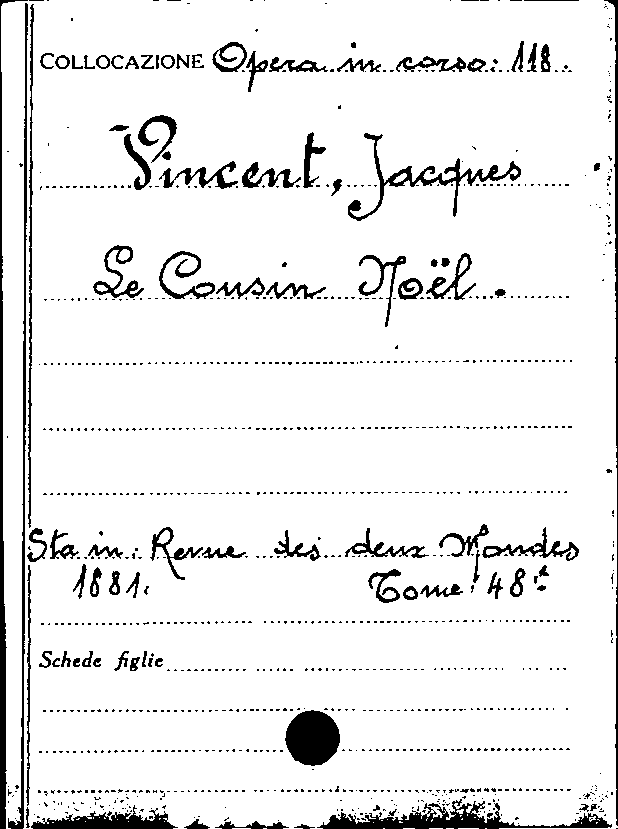 COLLOCAZIONE Opera in corso: 118.
Vincent, Jacques
Le Cousin Noël.
Sta in: Revue des deux Mondes
1881. Tome 48º
Schede figlie